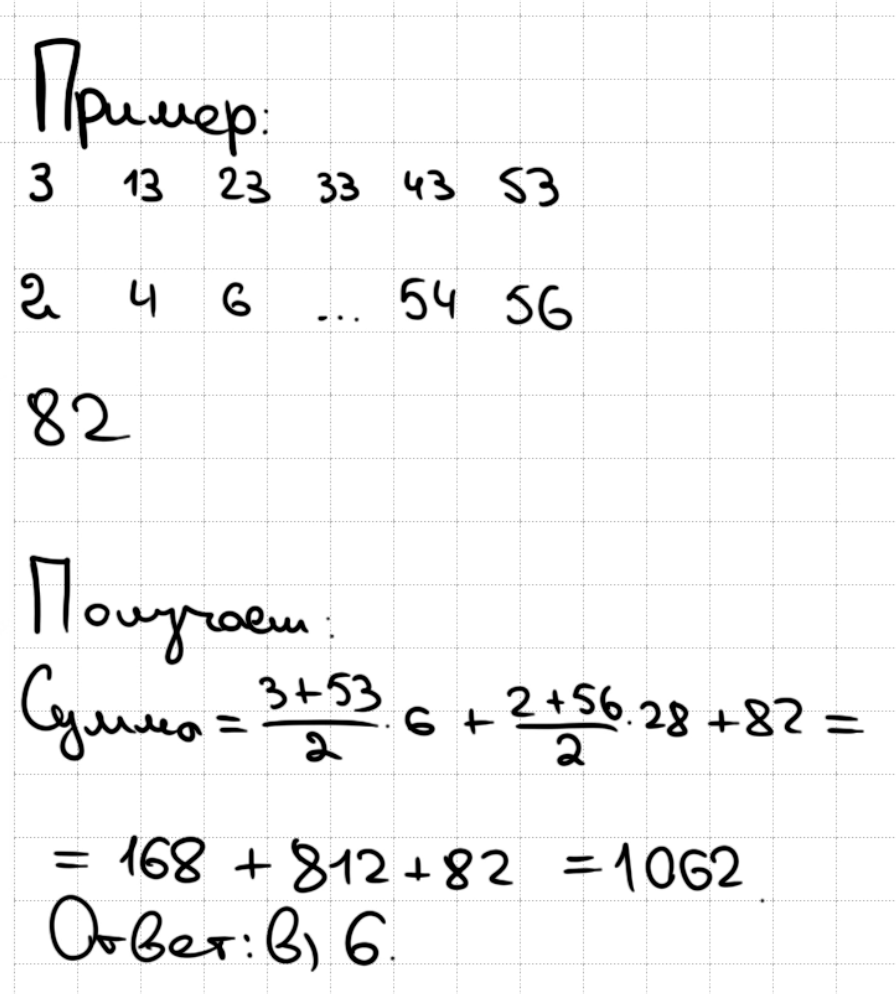 Пример:
3 13 23 33 43 53
2 4 6 ... 54 56
82
Получаем:
Сумма = \frac{3+53}{2} · 6 + \frac{2+56}{2} · 28 + 82 =
= 168 + 812 + 82 = 1062.
Ответ: в) 6.